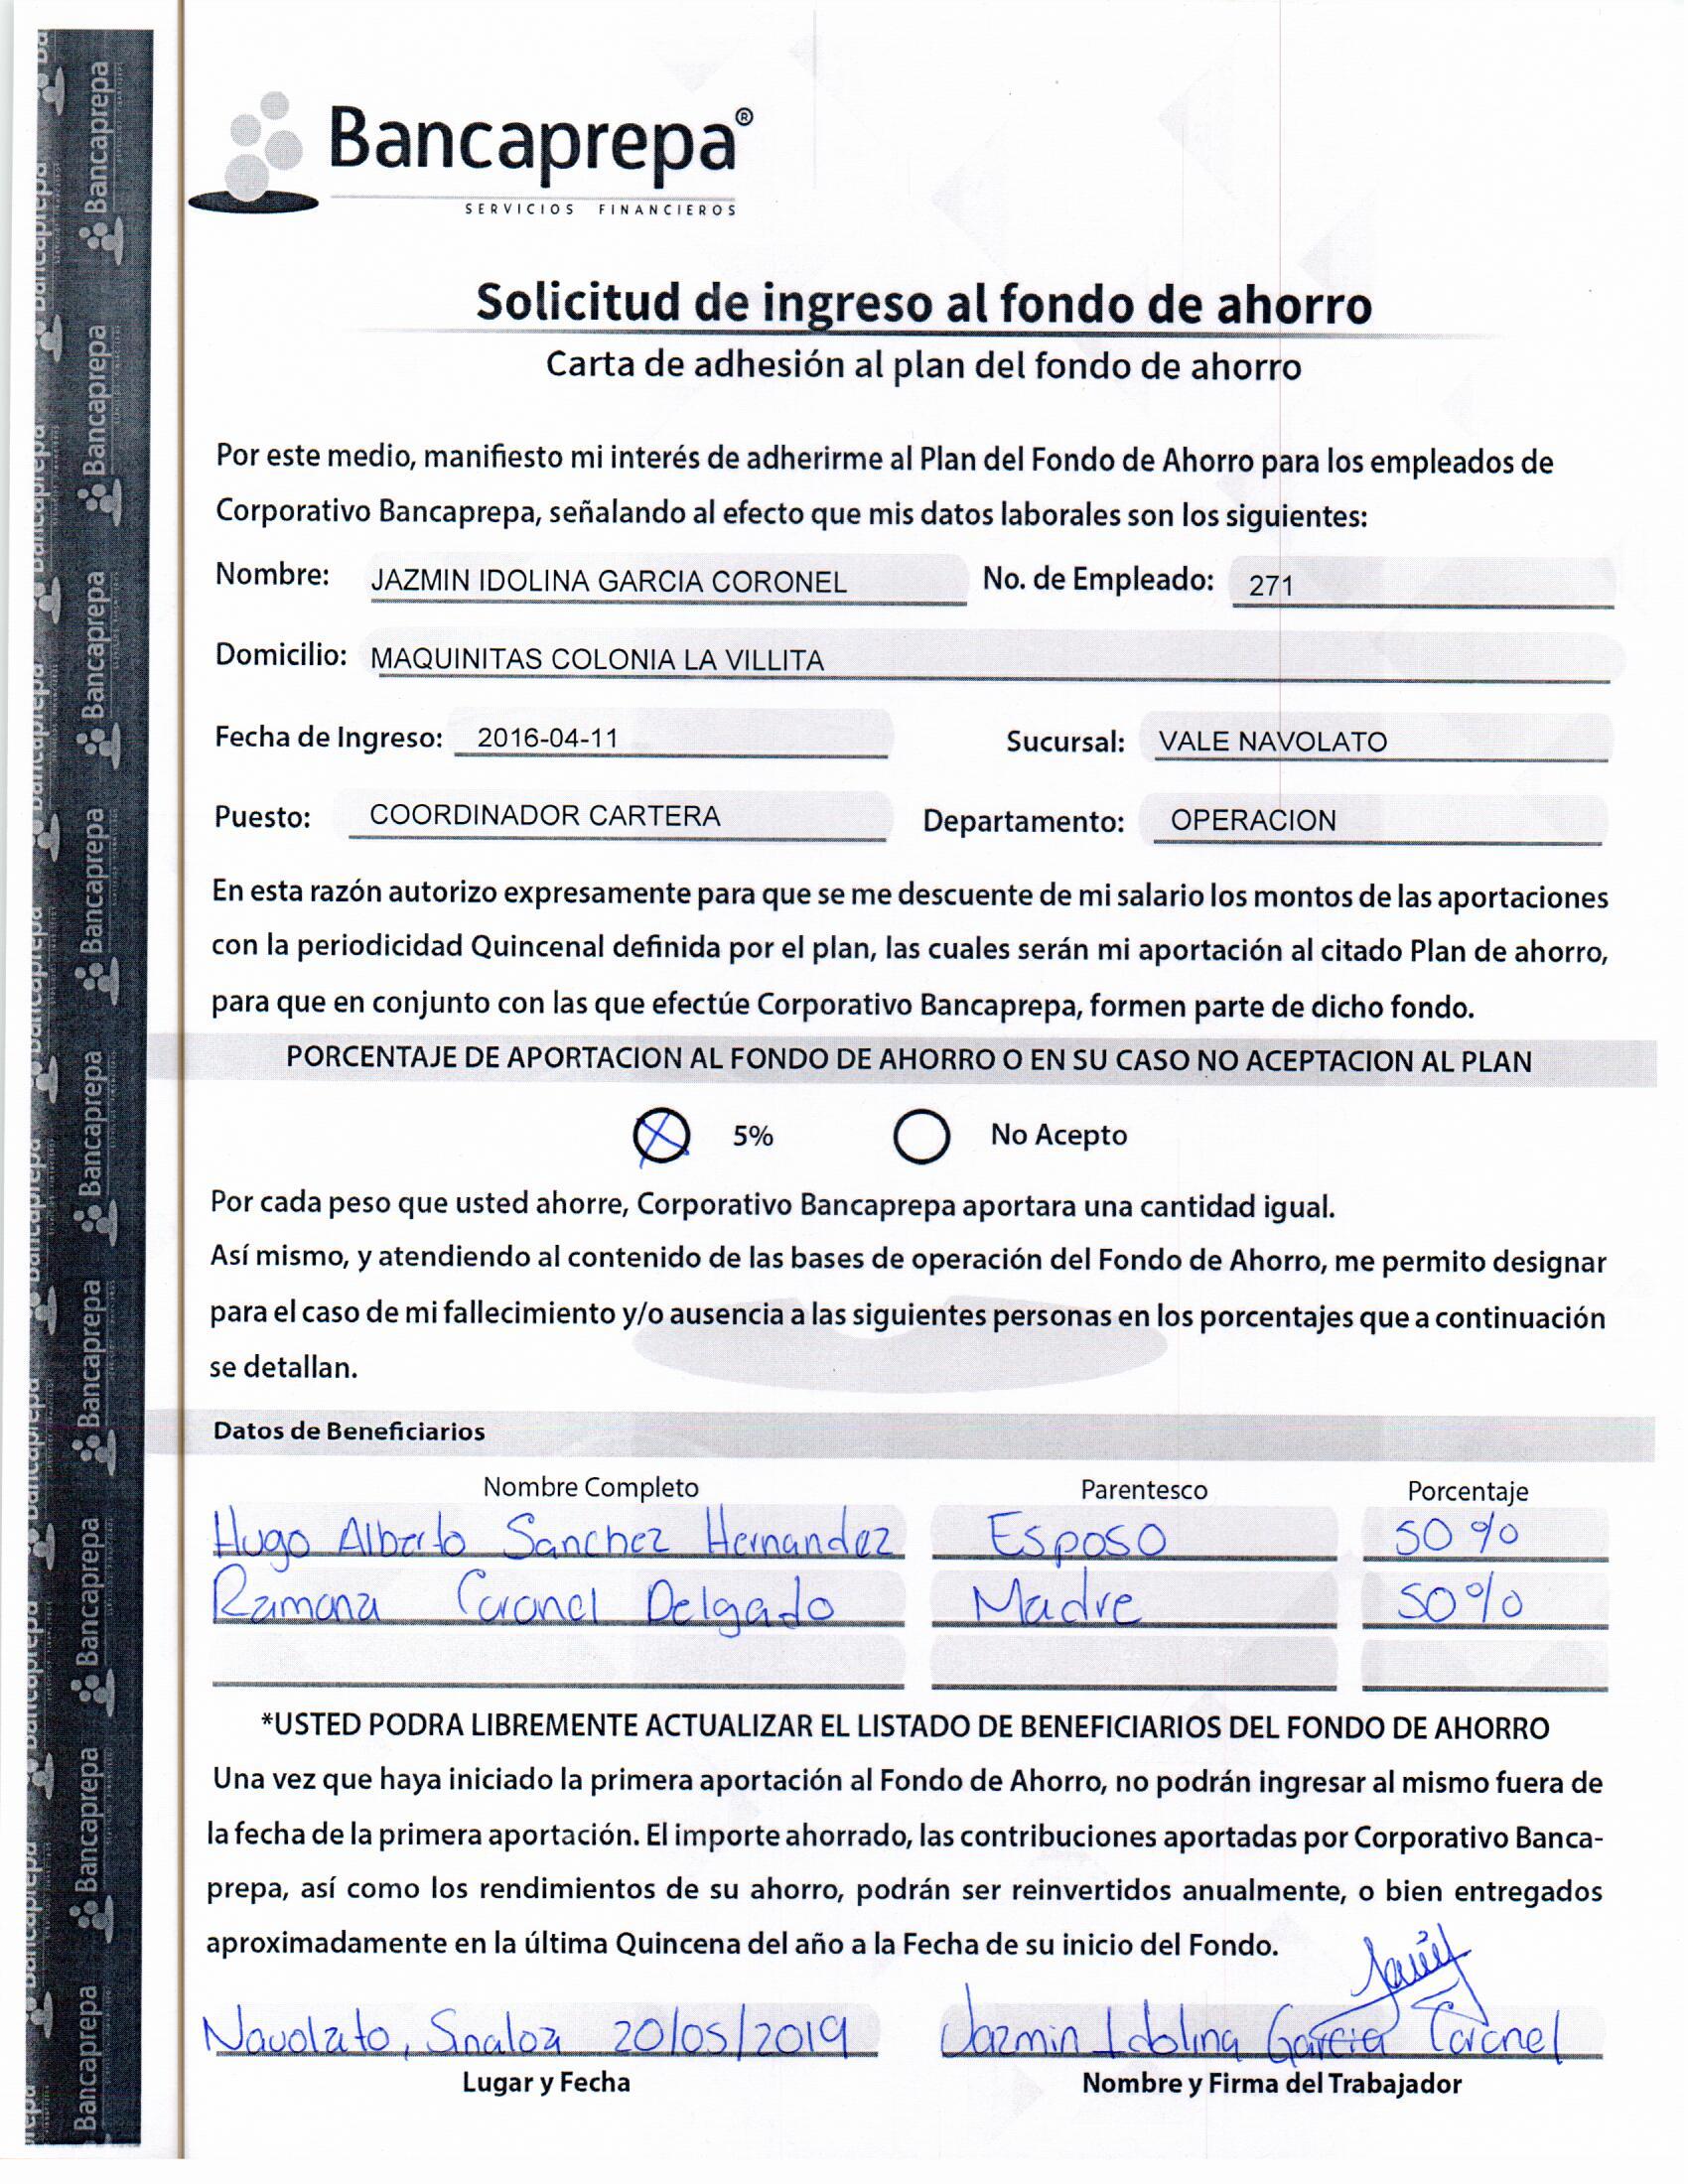 Bancaprepa®
SERVICIOS FINANCIEROS
Solicitud de ingreso al fondo de ahorro
Carta de adhesión al plan del fondo de ahorro
Por este medio, manifiesto mi interés de adherirme al Plan del Fondo de Ahorro para los empleados de
Corporativo Bancaprepa, señalando al efecto que mis datos laborales son los siguientes:
Nombre: JAZMIN IDOLINA GARCIA CORONEL No. de Empleado: 271
Domicilio: MAQUINITAS COLONIA LA VILLITA
Fecha de Ingreso: 2016-04-11 Sucursal: VALE NAVOLATO
Puesto: COORDINADOR CARTERA Departamento: OPERACION
En esta razón autorizo expresamente para que se me descuente de mi salario los montos de las aportaciones
con la periodicidad Quincenal definida por el plan, las cuales serán mi aportación al citado Plan de ahorro,
para que en conjunto con las que efectúe Corporativo Bancaprepa, formen parte de dicho fondo.
PORCENTAJE DE APORTACION AL FONDO DE AHORRO O EN SU CASO NO ACEPTACION AL PLAN
5% No Acepto
Por cada peso que usted ahorre, Corporativo Bancaprepa aportara una cantidad igual.
Así mismo, y atendiendo al contenido de las bases de operación del Fondo de Ahorro, me permito designar
para el caso de mi fallecimiento y/o ausencia a las siguientes personas en los porcentajes que a continuación
se detallan.
Datos de Beneficiarios
Nombre Completo Parentesco Porcentaje
Hugo Alberto Sanchez Hernandez Esposo 50%
Ramona Coronel Delgado Madre 50%
*USTED PODRA LIBREMENTE ACTUALIZAR EL LISTADO DE BENEFICIARIOS DEL FONDO DE AHORRO
Una vez que haya iniciado la primera aportación al Fondo de Ahorro, no podrán ingresar al mismo fuera de
la fecha de la primera aportación. El importe ahorrado, las contribuciones aportadas por Corporativo Banca-
prepa, así como los rendimientos de su ahorro, podrán ser reinvertidos anualmente, o bien entregados
aproximadamente en la última Quincena del año a la Fecha de su inicio del Fondo.
Navolato, Sinaloa 20/05/2019 Jazmin Idolina Garcia Coronel
Lugar y Fecha Nombre y Firma del Trabajador